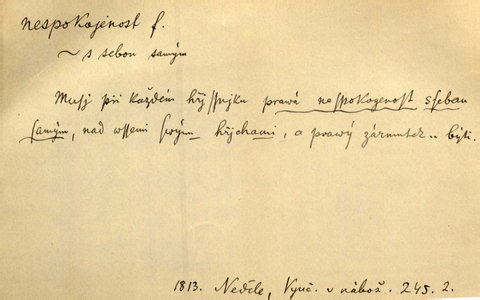 nespokojenost f.
~ s sebou samým
Musj při každém hřjssnjku prawá nesspokogenost s sebau
samým, nad wssemi swými hřjchami, a prawý zármutek .. býti.
1813. Neděle, Vyuč. v nábož. 245. 2.